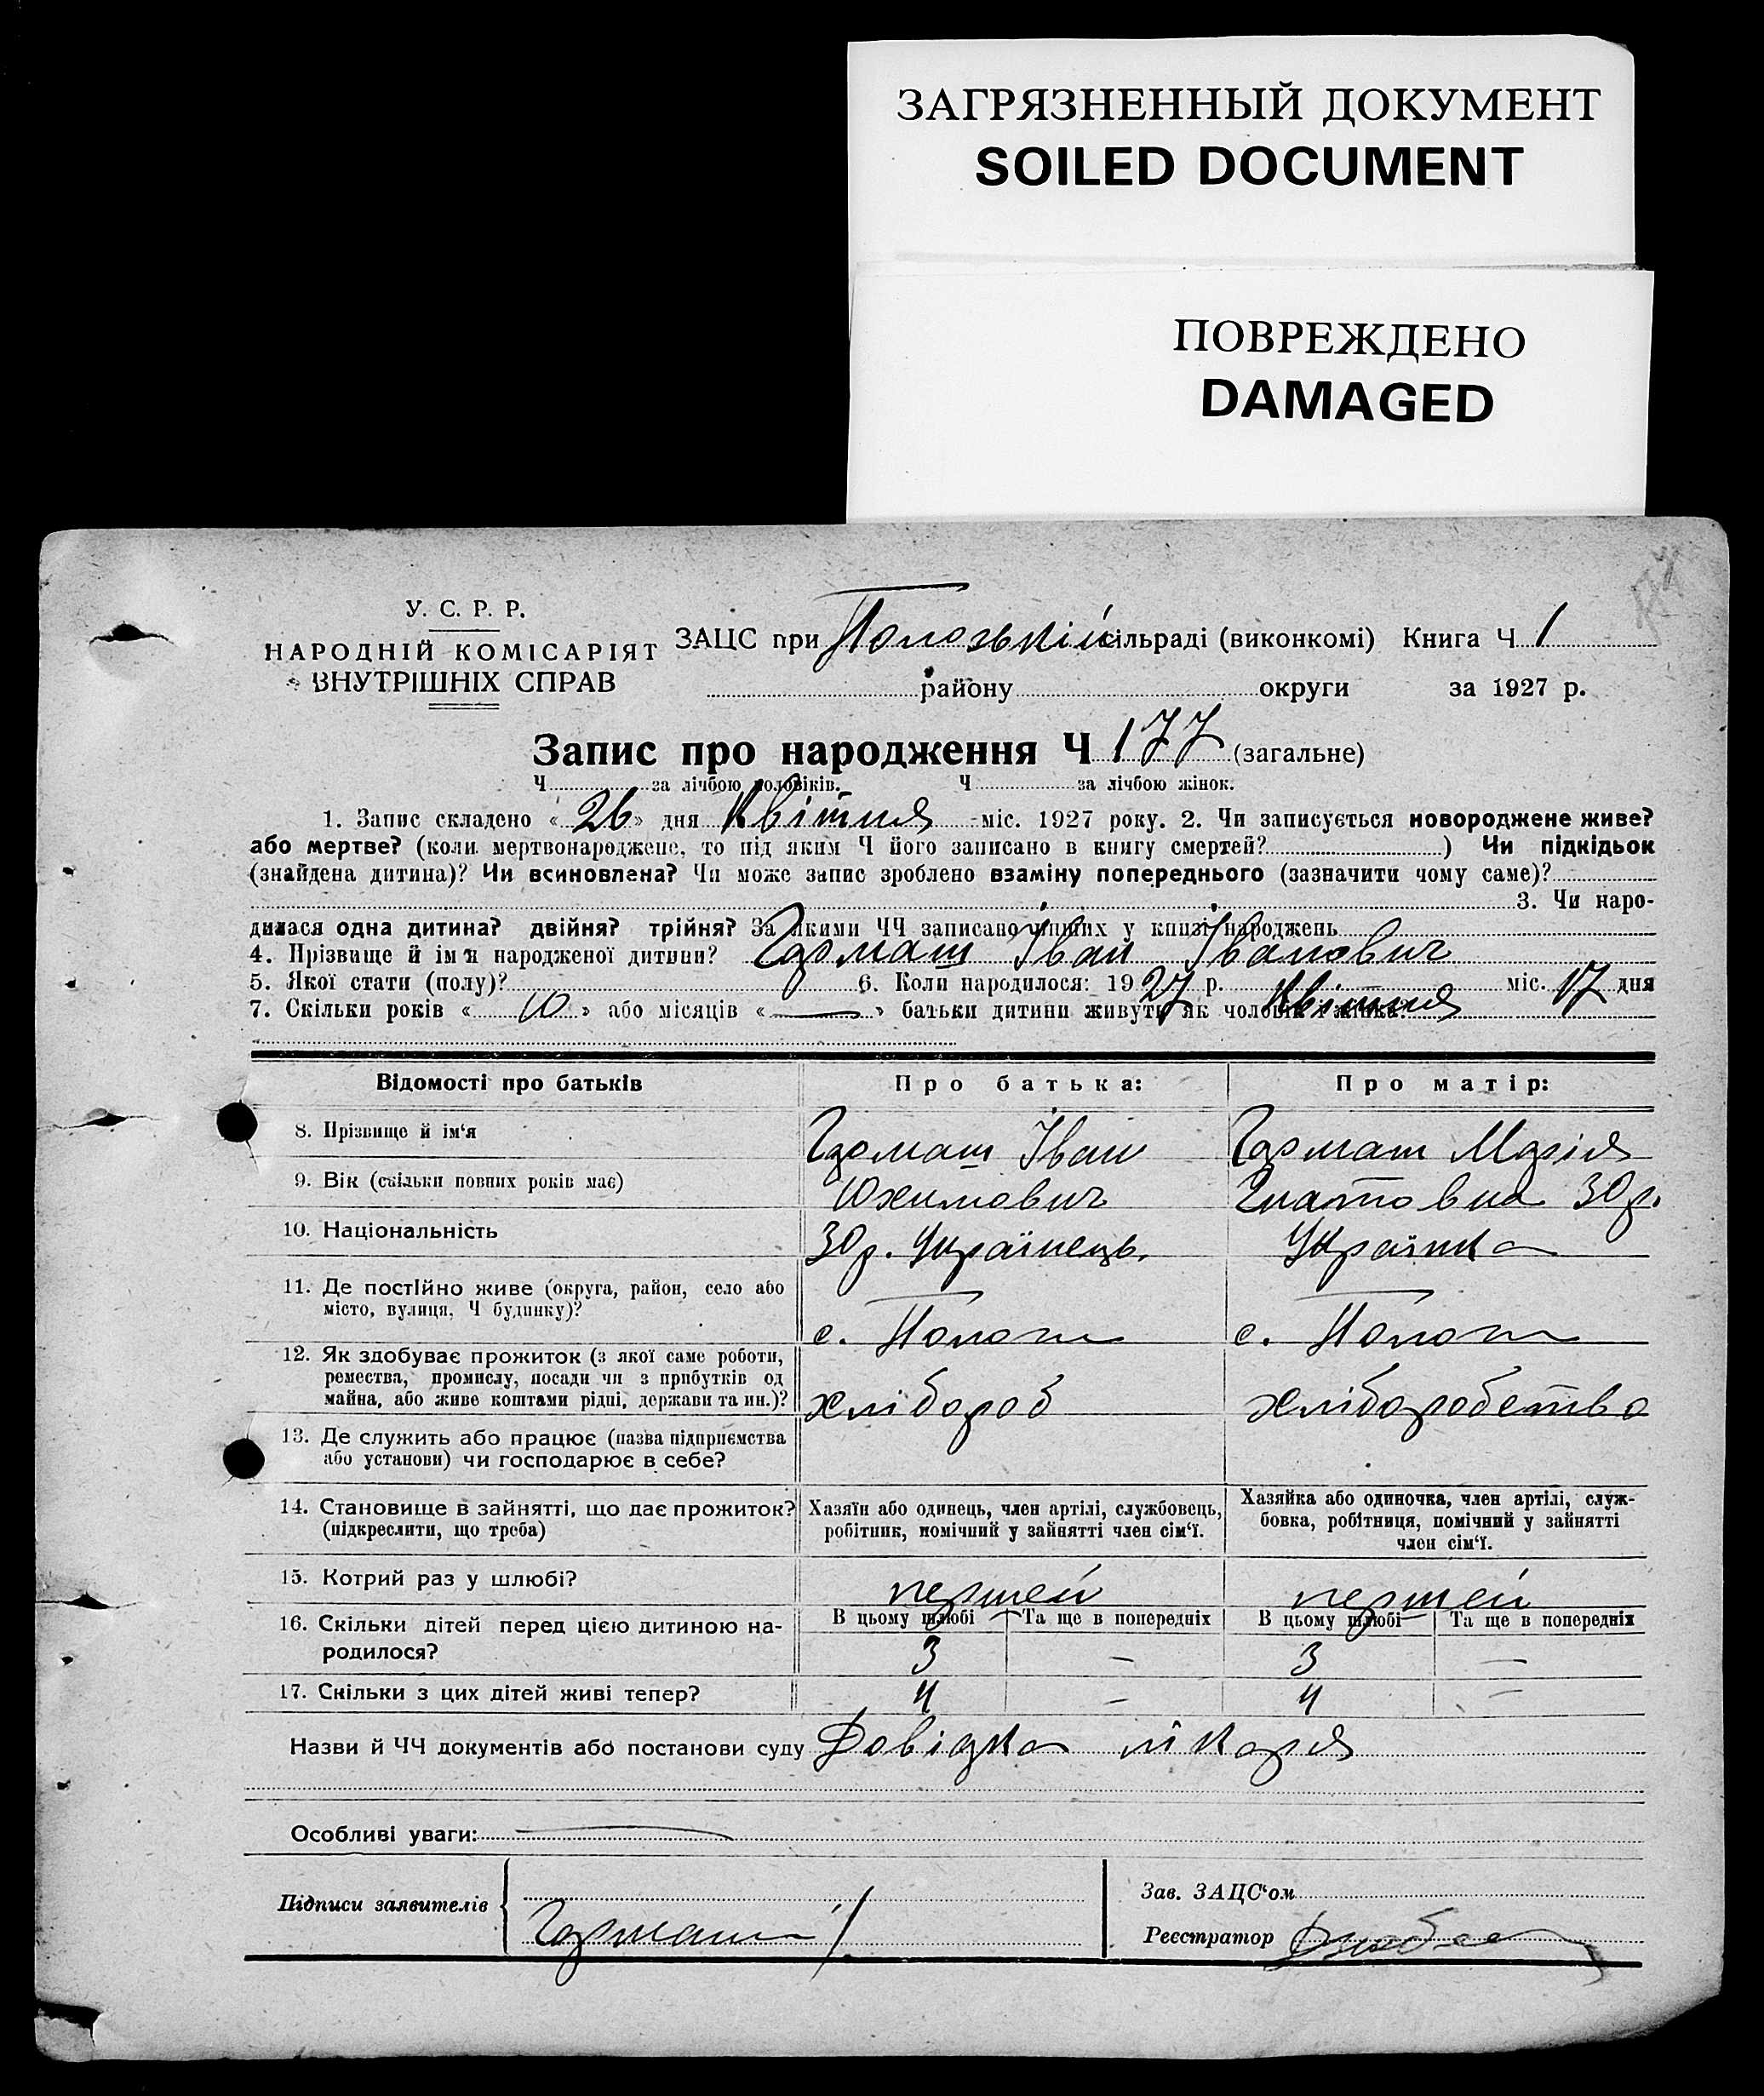 ЗАГРЯЗНЕННЫЙ ДОКУМЕНТ
SOILED DOCUMENT
ПОВРЕЖДЕНО
DAMAGED
У. С. Р. Р.
НАРОДНІЙ КОМІСАРІЯТ
ВНУТРІШНІХ СПРАВ
ЗАЦС при Пологській сільраді (виконкомі) Книга Ч 1
района округи за 1927 р.
Запис про народження Ч 177 (загальне)
Ч за лічбою чоловіків. Ч за лічбою жінок.
1. Запис складено « 26 » дня Квітня міс. 1927 року. 2. Чи записується новороджене живе?
або мертве? (коли мертвонароджене, то під яким Ч його записано в книгу смертей? ) Чи підкідьок
(знайдена дитина)? Чи всиновлена? Чи може запис зроблено взаміну попереднього (зазначити чому саме)?
3. Чи наро-
дилася одна дитина? двійня? трійня? За якими ЧЧ записано инших у книзі народжень
4. Прізвище й ім'я народженої дитини? Гармаш Іван Іванович
5. Якої стати (полу)? 6. Коли народилося: 1927 р. Квітня міс. 17 дня
7. Скільки років « 10 » або місяців « — » батьки дитини живуть як чоловік і жінка?
Відомості про батьків Про батька: Про матір:
8. Прізвище й ім'я Гармаш Іван Гармаш Марія
9. Вік (скільки повних років має) Юхимович Гнатовна 30 р.
10. Національність 30 р. Українець. Українка
11. Де постійно живе (округа, район, село або
місто, вулиця, Ч будинку)? с. Пологи с. Пологи
12. Як здобуває прожиток (з якої саме роботи,
ремества, промислу, посади чи з прибутків од
майна, або живе коштами рідні, держави та ин.)? хлібороб хліборобство
13. Де служить або працює (назва підприємства
або установи) чи господарює в себе?
14. Становище в зайнятті, що дає прожиток? Хазяїн або одинець, член артілі, службовець, Хазяйка або одиночка, член артілі, служ-
(підкреслити, що треба) робітник, помічний у зайнятті член сім'ї. бовка, робітниця, помічний у зайнятті
член сім'ї.
15. Котрий раз у шлюбі? першей першей
16. Скільки дітей перед цією дитиною на- В цьому шлюбі Та ще в попередніх В цьому шлюбі Та ще в попередніх
родилося? 3 — 3 —
17. Скільки з цих дітей живі тепер? 4 — 4 —
Назви й ЧЧ документів або постанови суду Довідка лікаря
Особливі уваги: —
Зав. ЗАЦС'ом
Підписи заявителів Гармаш
Реєстратор